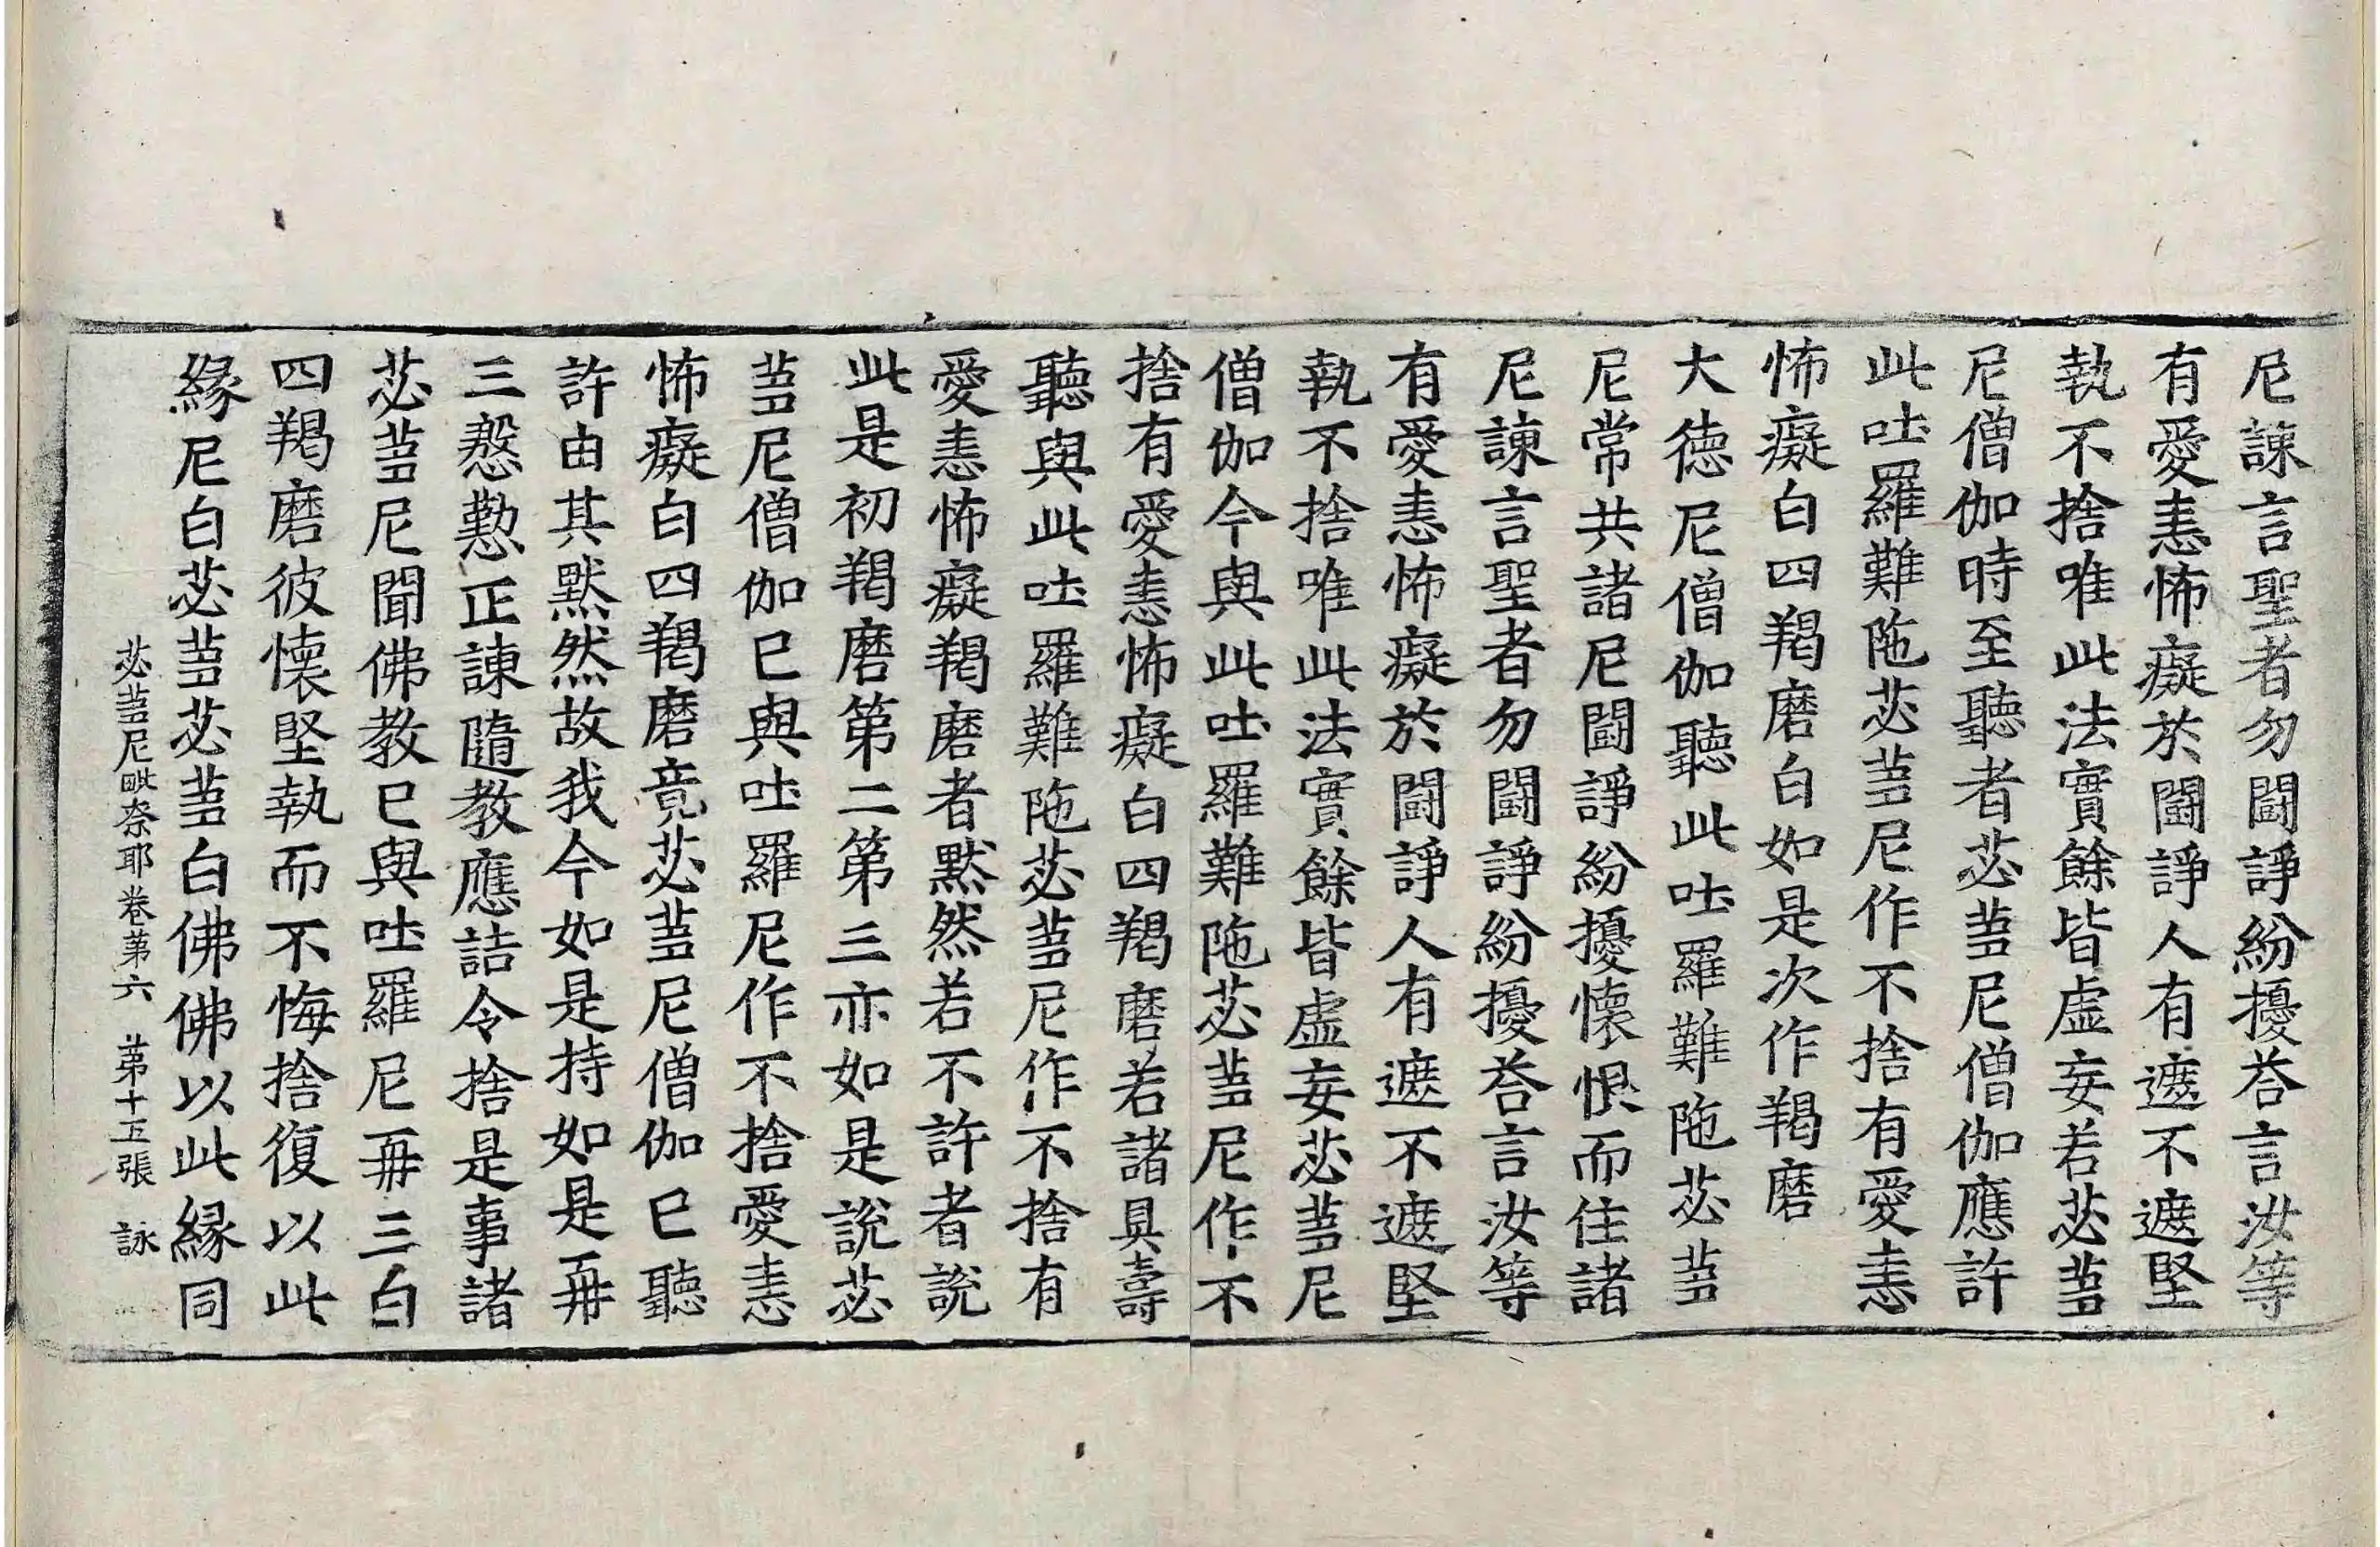 尼諫言聖者勿鬪諍紛擾荅言汝等
有愛恚怖癡於鬪諍人有遮不遮堅
執不捨唯此法實餘皆虛妄若苾芻
尼僧伽時至聽者苾芻尼僧伽應許
此吐羅難陁苾芻尼作不捨有愛恚
怖癡白四羯磨白如是次作羯磨
大德尼僧伽聽此吐羅難陁苾芻
尼常共諸尼鬪諍紛擾懷恨而住諸
尼諫言聖者勿鬪諍紛擾荅言汝等
有愛恚怖癡於鬪諍人有遮不遮堅
執不捨唯此法實餘皆虛妄苾芻尼
僧伽今與此吐羅難陁苾芻尼作不
捨有愛恚怖癡白四羯磨若諸具壽
聽與此吐羅難陁苾芻尼作不捨有
愛恚怖癡羯磨者默然若不許者說
此是初羯磨第二第三亦如是說苾
芻尼僧伽已與吐羅尼作不捨愛恚
怖癡白四羯磨竟苾芻尼僧伽已聽
許由其默然故我今如是持如是再
三慇懃正諫隨教應詰令捨是事諸
苾芻尼聞佛教已與吐羅尼再三白
四羯磨彼懷堅執而不悔捨復以此
緣尼白苾芻苾芻白佛佛以此緣同
苾芻尼毗奈耶卷第六　第十五張　詠